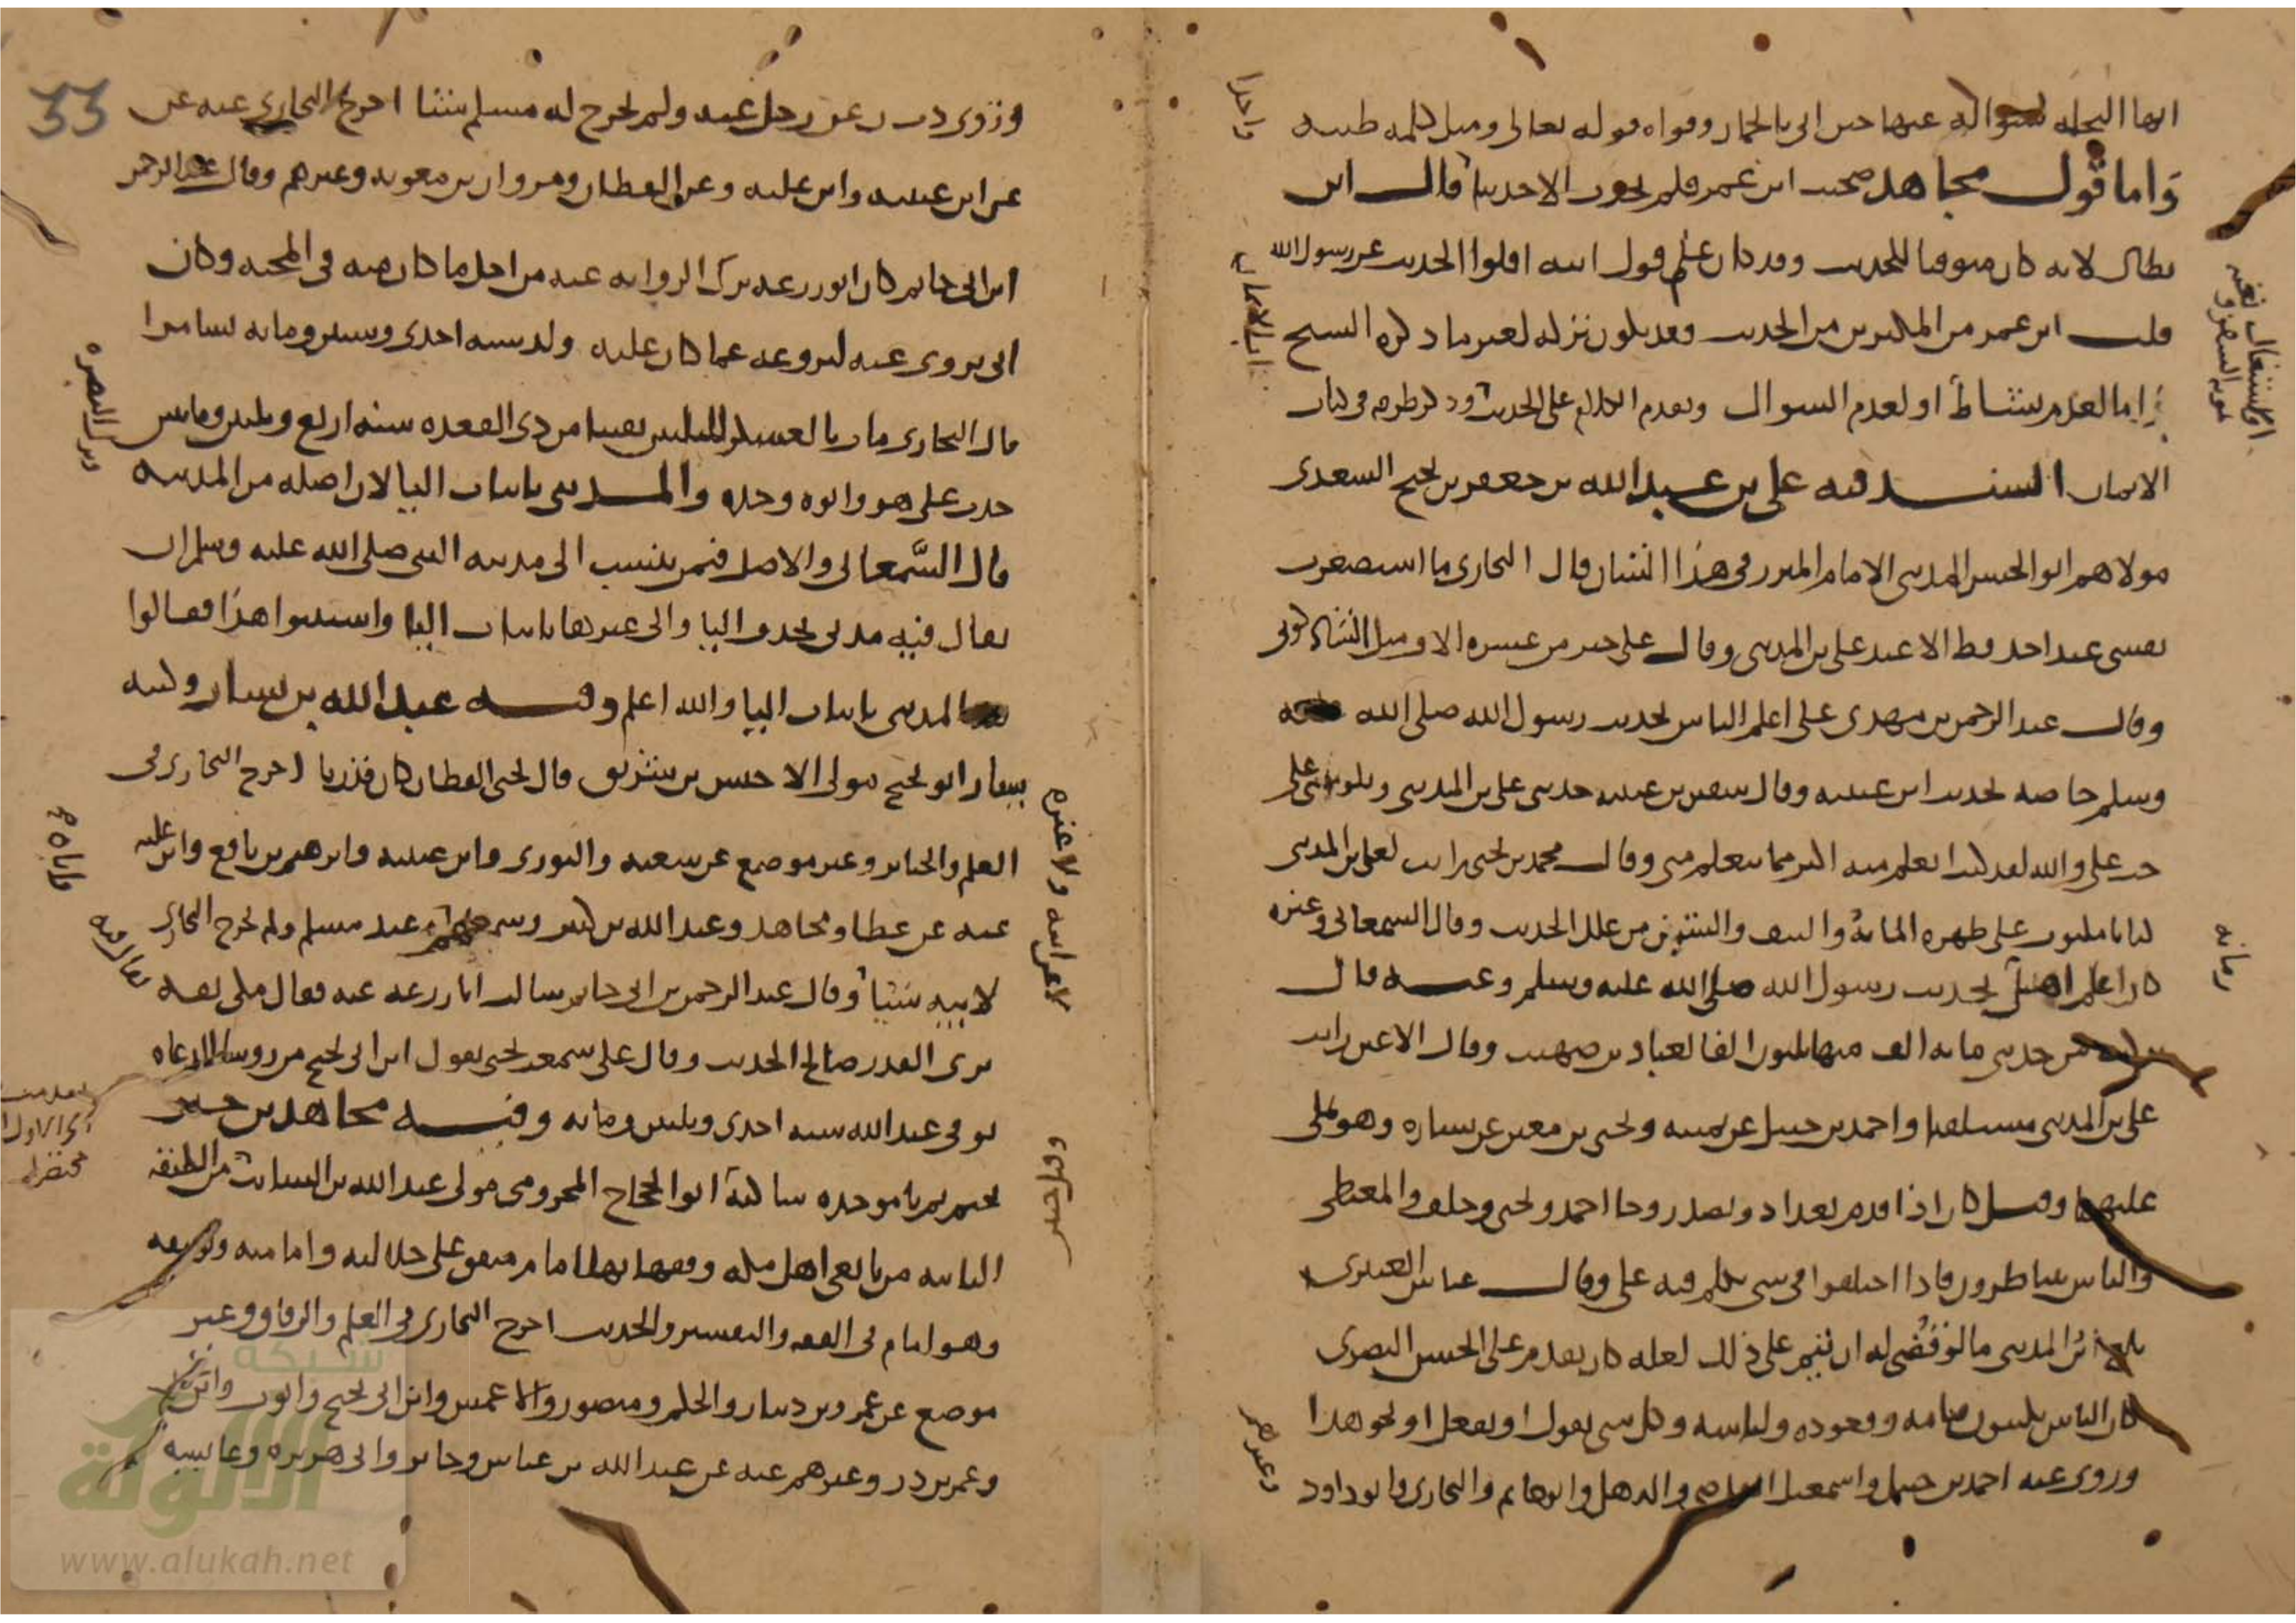 انها النخلة لسؤاله عنها حين اتي بالجمار وقواه قوله تعالى ومثل كلمة طيبة
واما قول مجاهد صحبت ابن عمر فلم يحدث الا حديثا قال ابن
بطال لانه كان متوقيا للحديث وقد كان علم قول ابيه اقلوا الحديث عن رسول الله
قلت ابن عمر من المكثرين من الحديث وقد يكون تركه لغير ما ذكره الشيخ
اما لعدم نشاط او لعدم السوال وتقدم الكلام على الحديث وذكر طرقه في كتاب
الايمان السند فيه علي بن عبد الله بن جعفر بن نجيح السعدي
مولاهم ابو الحسن المديني الامام المبرز في هذا الشان قال البخاري ما استصغرت
نفسي عند احد قط الا عند علي بن المديني وقال علي خير من عشرة الاف مثل الشاذكوني
وقال عبد الرحمن بن مهدي علي اعلم الناس بحديث رسول الله صلى الله
وسلم خاصة بحديث ابن عيينة وقال سفين بن عيينة حدثني علي بن المديني وتلومني على
حب علي والله لقد كنت اتعلم منه اكثر مما يتعلم مني وقال محمد بن يحيى رايت لعلي بن المديني
كتابا مكتوب على ظهره المائة والنيف والستين من علل الحديث وقال السمعاني وغيره
كان اعلم اهل بحديث رسول الله صلى الله عليه وسلم وعنه قال
تركت من حديثي مائة الف منها ثلثون الفا لعباد بن صهيب وقال الاعين رايت
علي بن المديني مستلقيا واحمد بن حنبل عن يمينه ويحيى بن معين عن يساره وهو يملي
عليهما وقيل كان اذا قدم بغداد وتصدر وجا احمد ويحيى وخلف والمعيطي
والناس يتناظرون فاذا اختلفوا في شي تكلم فيه علي وقال عباس العنبري
بلغ ابن المديني ما لو قضي له ان يتم على ذلك لعله كان يقدم على الحسن البصري
كان الناس يكتبون قيامه وقعوده ولباسه وكل شي يقول او يفعل او نحو هذا
وروى عنه احمد بن حنبل واسمعيل القاضي والذهلي وابو حاتم والبخاري وابو داود
واحدا
زمانه
وغيرهم
33
وروى د ت ن عن رجل عنه ولم يخرج له مسلم شيئا اخرج البخاري عنه عن
عن ابن عيينة وابن علية وعن القطان ومروان بن معوية وغيرهم وقال عبد الرحمن
ابن ابي حاتم كان ابو زرعة ترك الرواية عنه من اجل ما كان منه في المحنة وكان
ابي يروي عنه لنزوعه عما كان عليه ولد سنة احدى وستين ومائة بسامرا
قال البخاري مات بالعسكر لليلتين بقيتا من ذي القعدة سنة اربع وثلثين ومايتين
حدث علي هو وابوه وجده والمديني باثبات اليا لان اصله من المدينة
قال السمعاني والاصل فيمن ينسب الى مدينة النبي صلى الله عليه وسلم ان
يقال فيه مدني بحذف اليا والى غيرها باثبات اليا واستثنوا هذا فقالوا
المديني باثبات اليا والله اعلم وفيه عبد الله بن يسار وكنية
يسار ابو نجيح مولى الاخنس بن شريق قال يحيى القطان كان قدريا اخرج البخاري في
العلم والجنائز وغير موضع عن سعبه والثوري وابن عيينة وابرهيم بن نافع وابن علية
عنه عن عطا ومجاهد وعبد الله بن كثير عند مسلم ولم يخرج البخاري
لابيه شيئا وقال عبد الرحمن بن ابي حاتم سالت ابا زرعة عنه فقال مكي ثقة
يرى القدر صالح الحديث وقال علي سمعت يحيى يقول ابن ابي نجيح من روسا الدعاة
توفي عبد الله سنة احدى وثلثين ومائة وفيه مجاهد بن جبر
بجيم ثم با موحدة ساكنة ابو الحجاج المخزومي مولى عبد الله بن السائب من الطبقة
الثانية من تابعي اهل مكة وفقهائها امام متفق على جلالته وامامته وتوثيقه
وهو امام في الفقه والتفسير والحديث اخرج البخاري في العلم والرقاق وغير
موضع عن عمرو بن دينار والحكم ومنصور والاعمش وابن ابي نجيح وايوب وابن عون
وعمر بن ذر وغيرهم عنه عن عبد الله بن عباس وجابر وابي هريرة وعائشة
وقيل جبير
شبكة
الألوكة
www.alukah.net